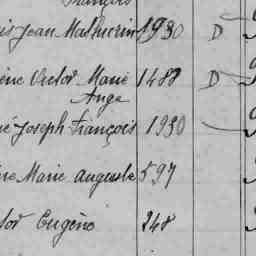 François
is Jean Mathurin 1930 D
ène Victor Marie 1488 D
Ange
é Joseph François 1930
ine Marie auguste 597
tor Eugène 248